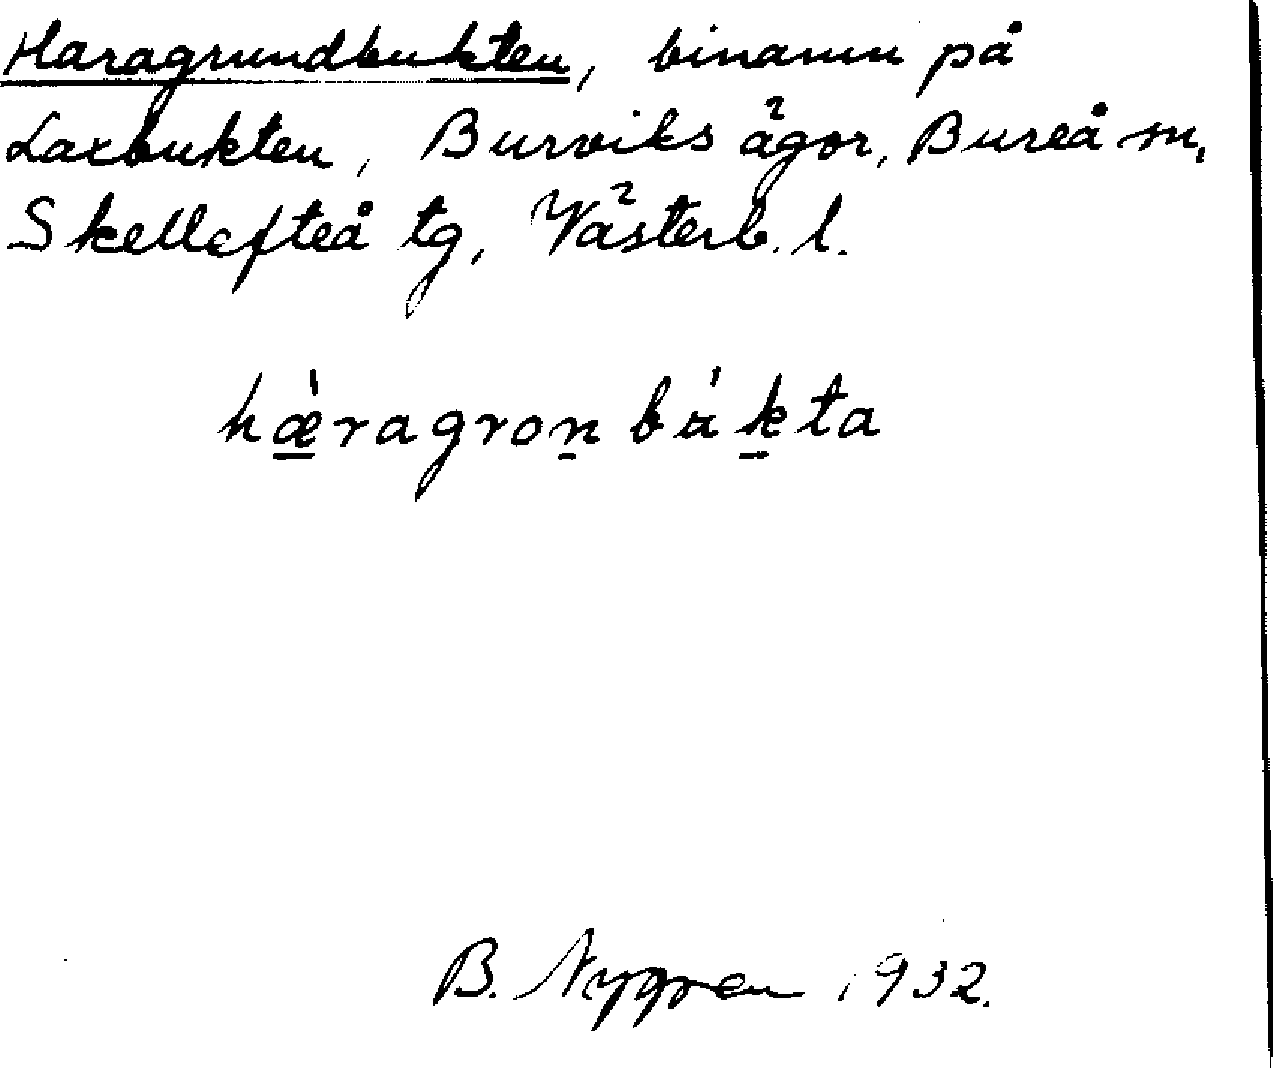 Haragrundbukten, binamn på
Laxbukten, Burviks ägor, Bureå sn,
Skellefteå tg, Västerb. l.
hæ̱̀ragron̠bákta
B. Nygren 1932.